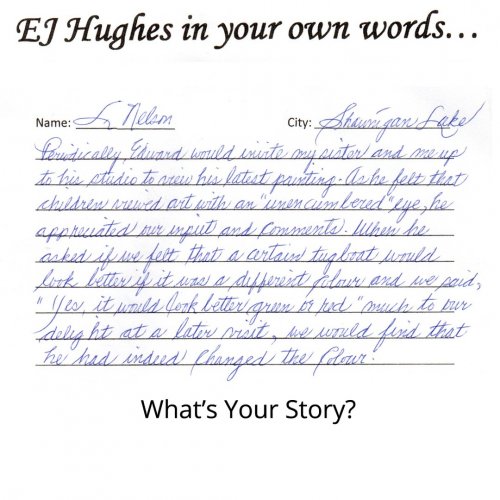 EJ Hughes in your own words...
Name: L Nelson City: Shawnigan Lake
Periodically, Edward would invite my sister and me up
to his studio to view his latest painting. As he felt that
children viewed art with an "unencumbered" eye, he
appreciated our input and comments. When he
asked if we felt that a certain tugboat would
look better if it was a different colour and we said,
"Yes, it would look better green or red" much to our
delight at a later visit, we would find that
he had indeed changed the colour.
What's Your Story?